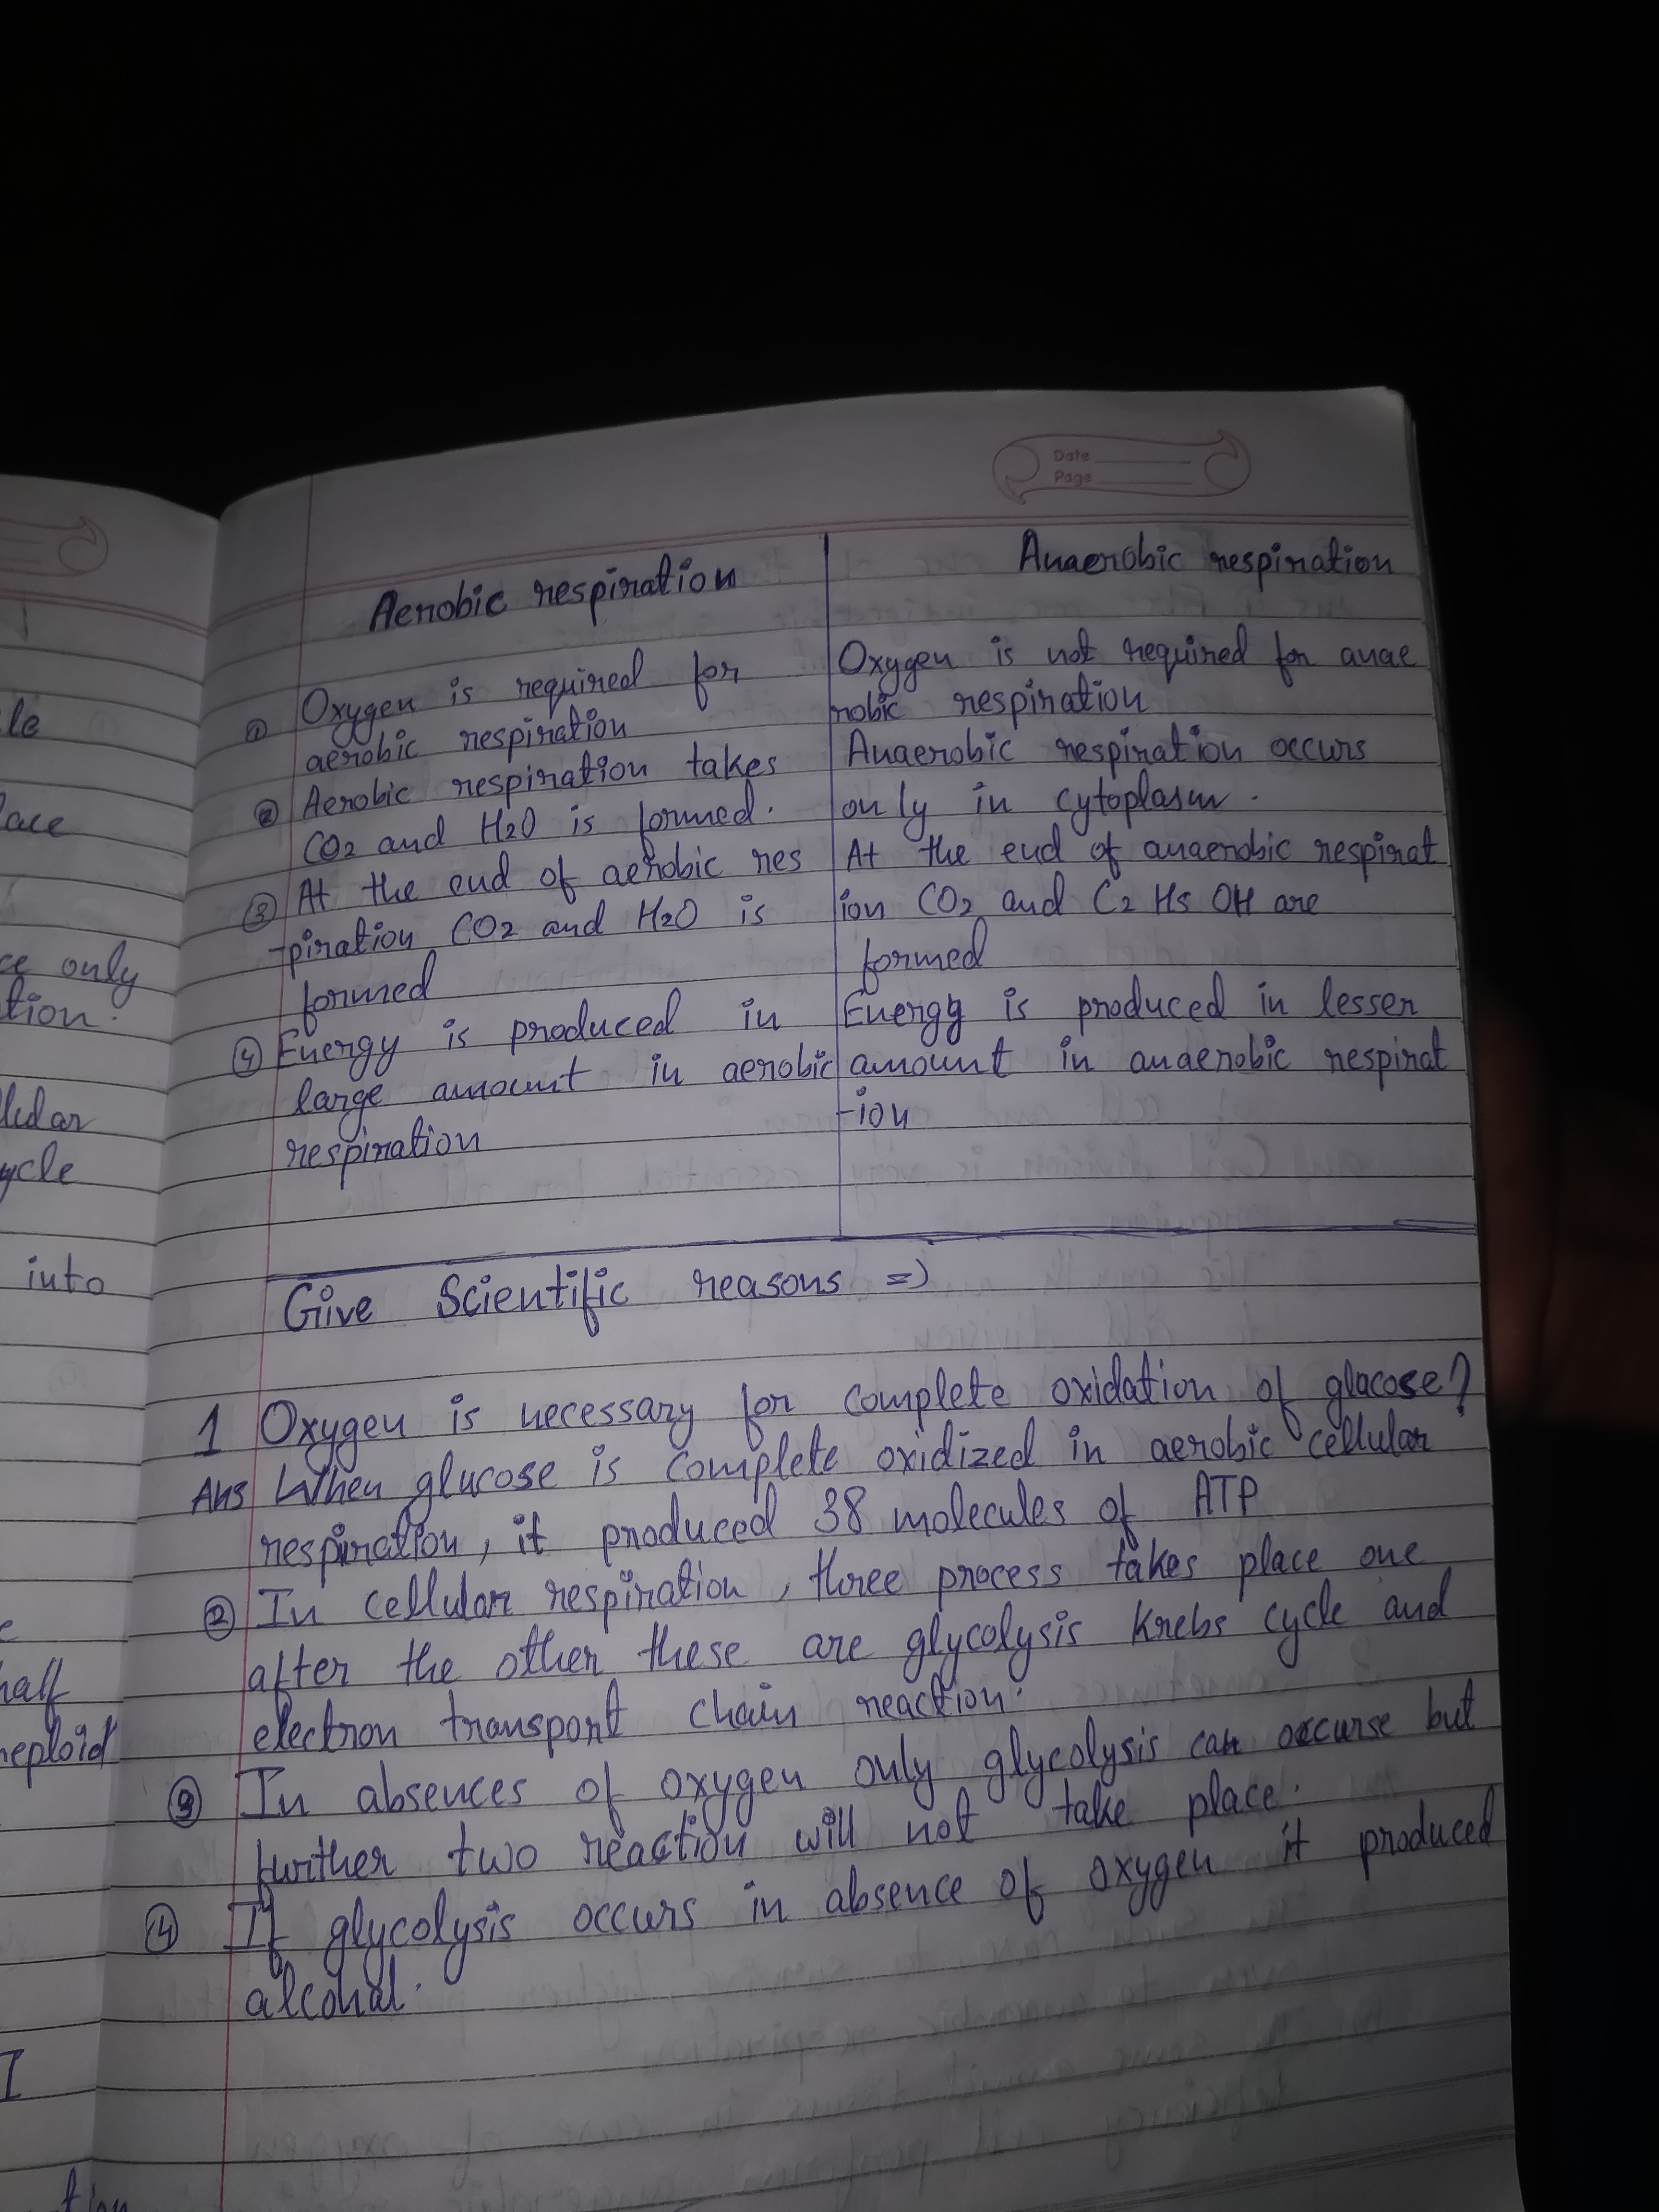 Date
Page
Aerobic respiration
① Oxygen is required for
aerobic respiration
② Aerobic respiration takes
CO2 and H2O is formed.
③ At the end of aerobic res
-piration CO2 and H2O is
formed
④ Energy is produced in
large amount in aerobic
respiration
Anaerobic respiration
Oxygen is not required for anae
robic respiration
Anaerobic respiration occurs
only in cytoplasm.
At the end of anaerobic respirat
ion CO2 and C2 H5 OH are
formed
Energy is produced in lesser
amount in anaerobic respirat
-ion
Give Scientific reasons =)
1 Oxygen is necessary for complete oxidation of glacose?
Ans When glucose is complete oxidized in aerobic cellular
respiration, it produced 38 molecules of ATP
② In cellular respiration, three process takes place one
after the other these are glycolysis Krebs cycle and
electron transport chain reaction.
③ In absences of oxygen only glycolysis can occurse but
further two reaction will not take place.
④ If glycolysis occurs in absence of oxygen it produced
alcohal.
le
lace
ce only
tion.
llular
ycle
into
half
heploid
I